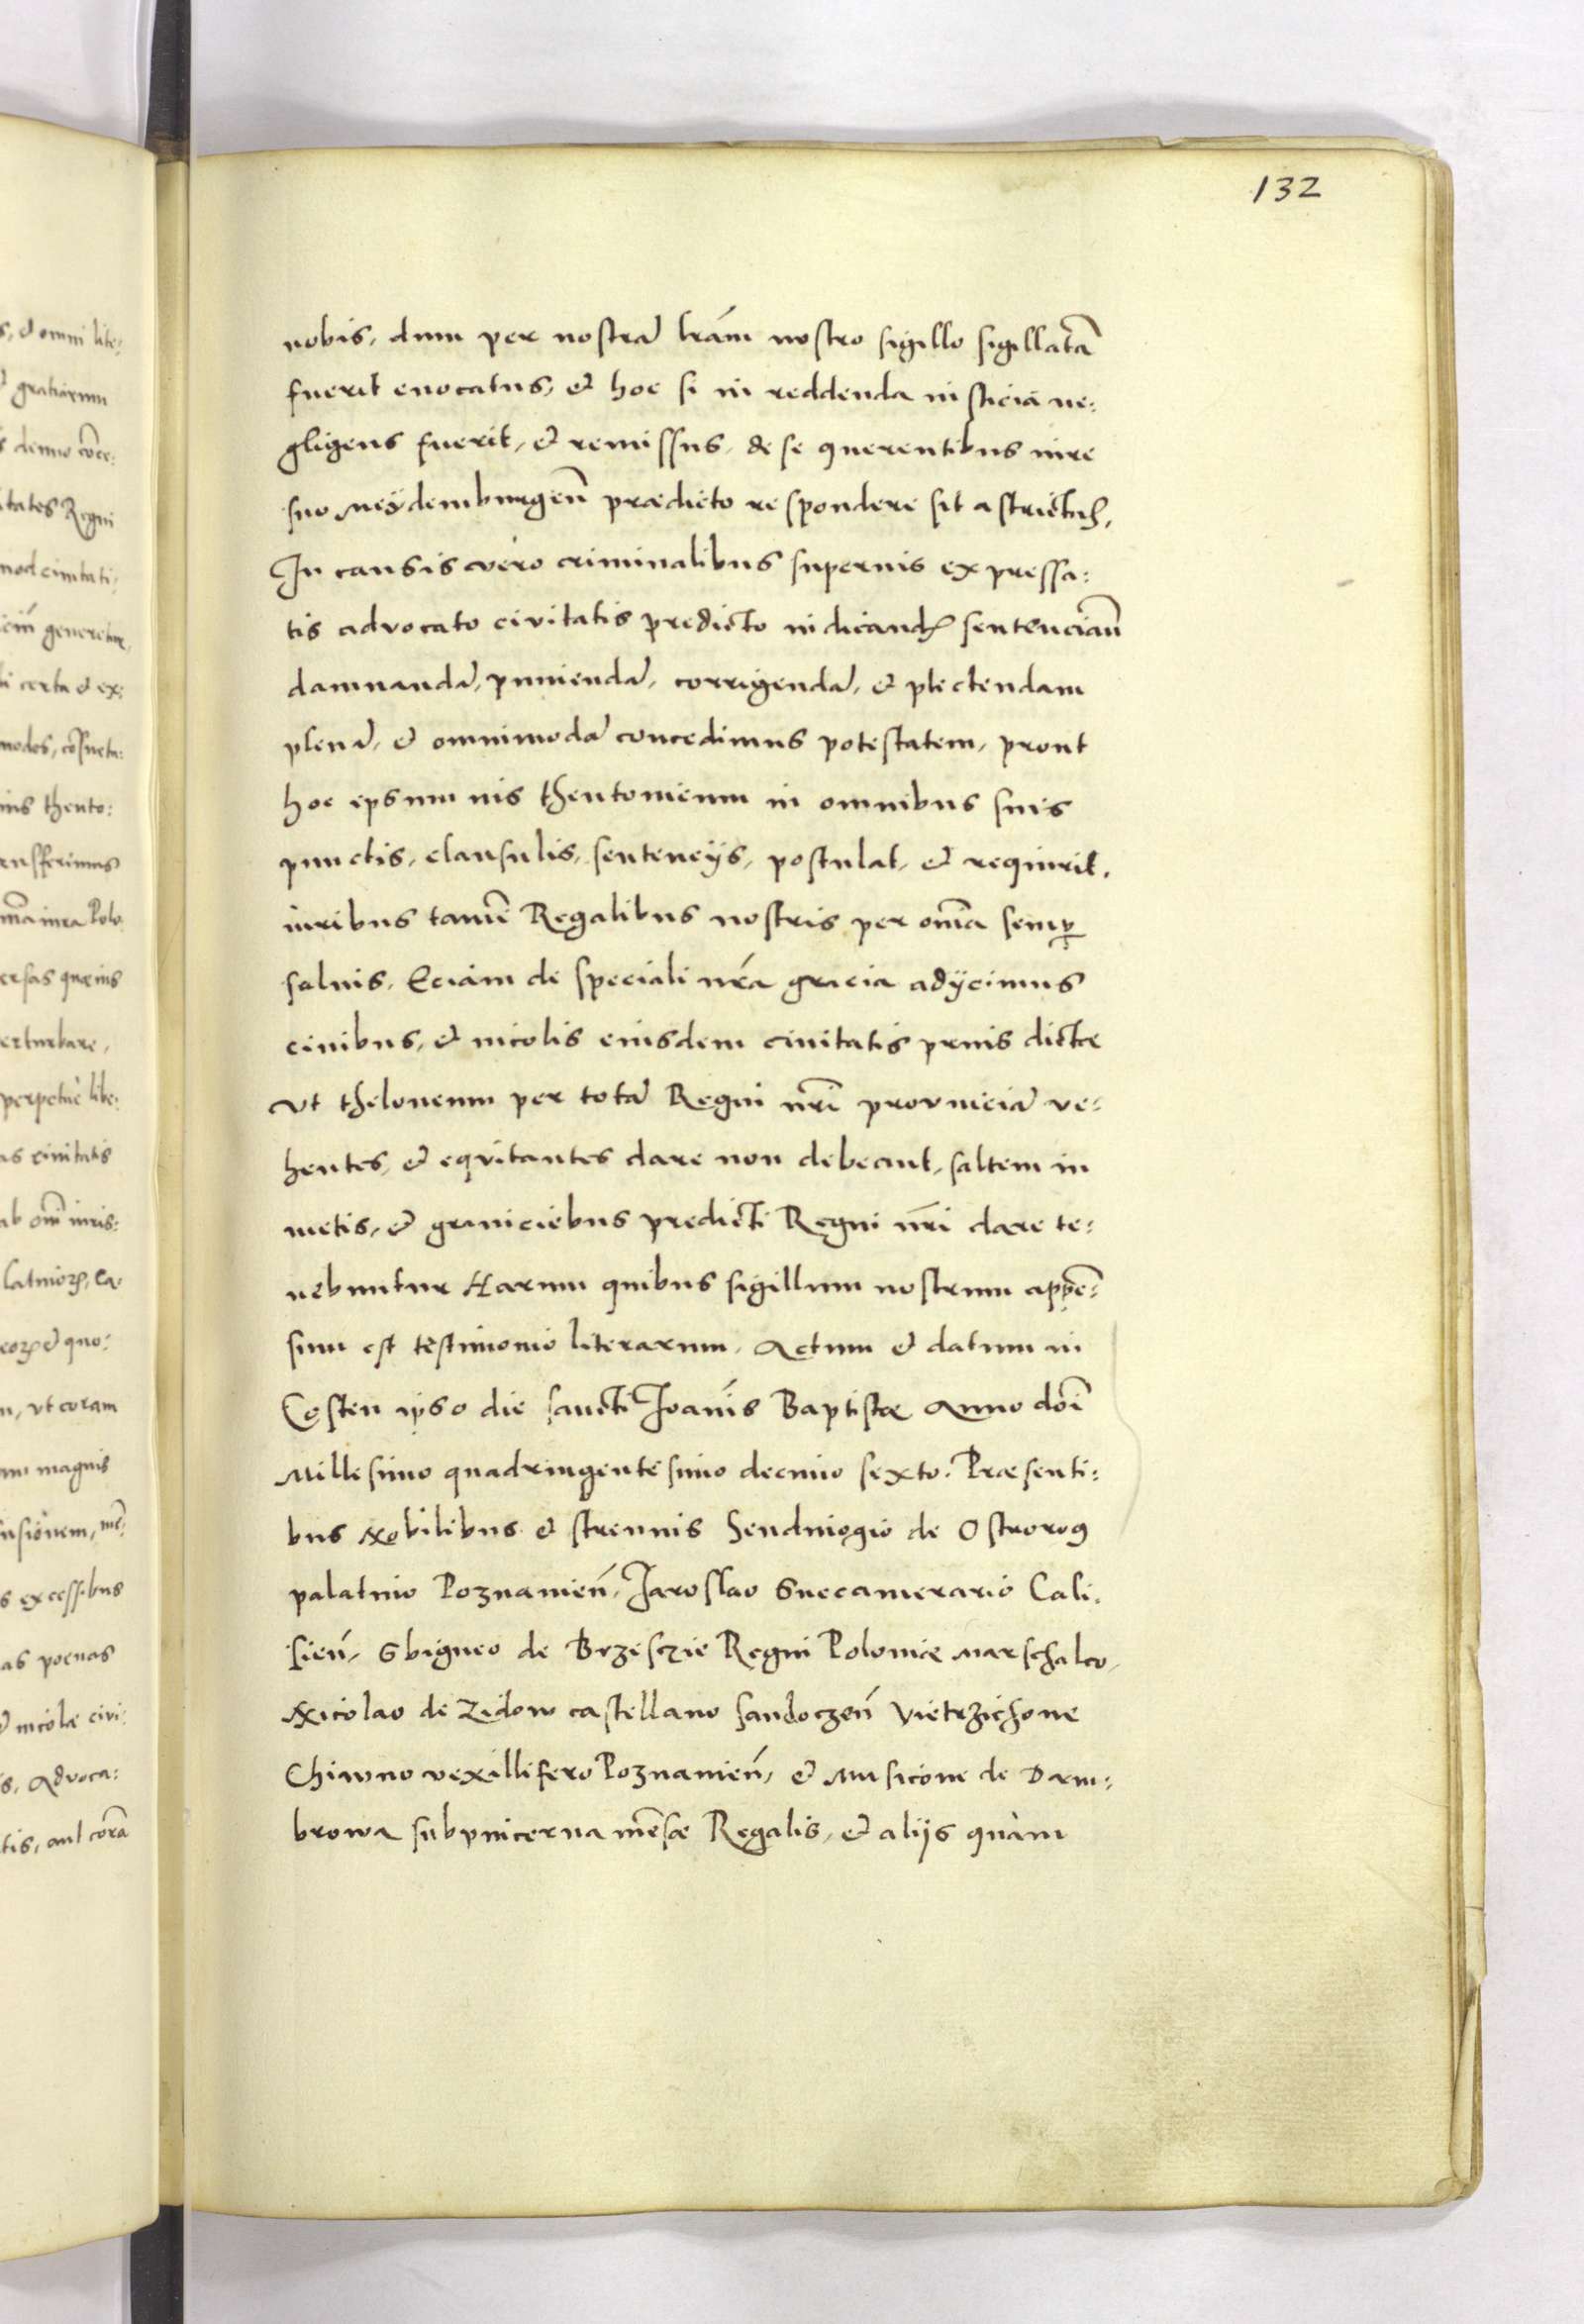 132
nobis, dum per nostrã lrãm nostro sigillo sigillatã
fuerit euocatus, et hoc si in reddenda iusticia ne:
gligens fuerit, et remissus, de se querentibus iure
suo Meÿdemburgeñ prædicto respondere sit astrictus,
In causis vero criminalibus superius expressa:
tis advocato civitatis predicto iudicandi sentenciam
damnandã, puniendã, corrigendã, et plectendam
plenã, et omnimodã concedimus potestatem, prout
hoc ipsum ius theutonicum in omnibus suis
punctis, clausulis, sentencÿs, postulat, et requirit,
iuribus tamẽ Regalibus nostris per om̃a semp
saluis, Eciam de speciali nr̃a gracia adÿcimus
ciuibus, et incolis eiusdem ciuitatis prius dictæ
Vt theloneum per totã Regni nr̃i provinciã ve:
hentes, et equitantes dare non debeant, saltem in
metis, et graniciebus predicti Regni nr̃i dare te:
nebuntur Harum quibus sigillum nostrum appẽ:
sum est testimonio literarum, Actum et datum in
Costen ipso die sancti Joañis Baptistæ Anno dõi
Millesimo quadringentesimo decimo sexto. Præsenti:
bus Nobilibus et strenuis Sendiuogio de Ostrorog
palatino Poznanieñ, Jaroslao Succamerario Cali:
sieñ, Sbigneo de Brzesczie Regni Poloniæ Marschalco,
Nicolao de Zidow castellano Sandoczeñ Vietrzichone
Chiwno vexillifero Poznanieñ, et Mussicone de Dam:
browa subpincerna mẽsæ Regalis, et aliis quam